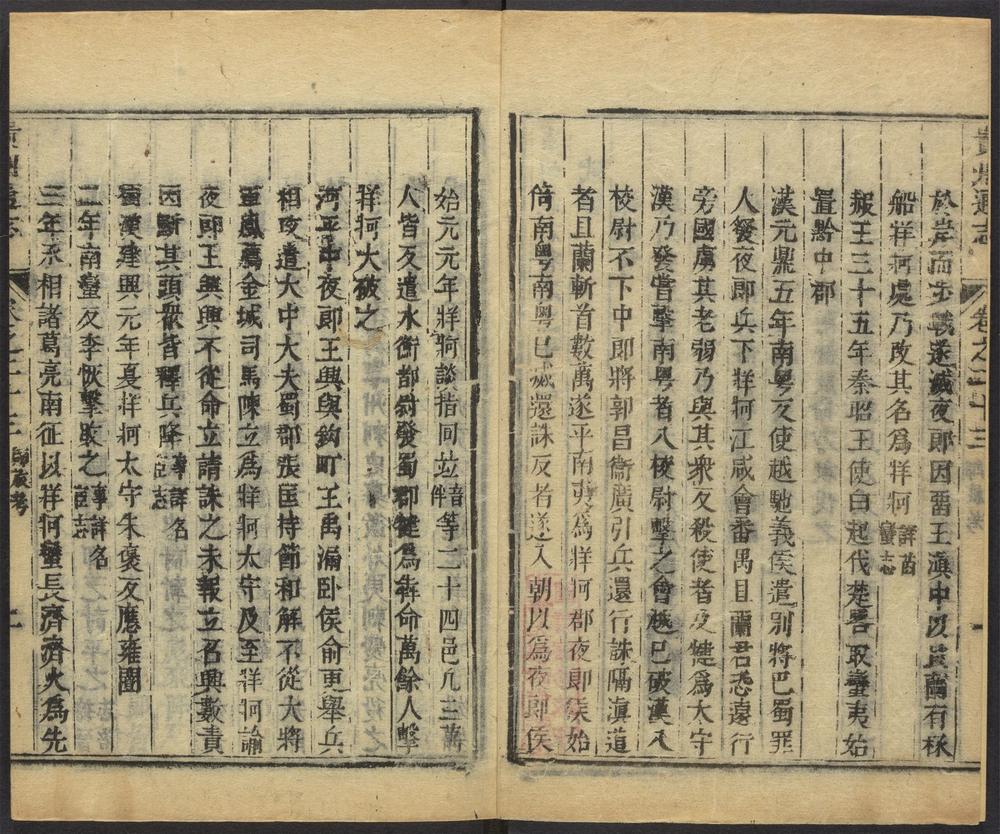 貴州通志 卷之二十三 師旅考
於岸而步戰遂滅夜郎因畱王滇中以且蘭有椓
船牂柯處乃改其名爲牂柯 詳苗蠻志
赧王三十五年秦昭王使白起伐楚畧取蠻夷始
置黔中郡
漢元鼎五年南粤反使越馳義侯遣别將巴蜀罪
人發夜郎兵下牂柯江咸會番禺且蘭君恐遠行
旁國虜其老弱乃與其衆反殺使者及犍爲太守
漢乃發嘗擊南粤者八校尉擊之會越已破漢八
校尉不下中郎將郭昌衞廣引兵還行誅隔滇道
者且蘭斬首數萬遂平南夷爲牂柯郡夜郎侯始
倚南粤南粤已滅還誅反者遂入朝以爲夜郎侯
始元元年牂牁談指同竝 音伴 等二十四邑凡三萬
人皆反遣水衡都尉發蜀郡犍爲犇命萬餘人擊
牂柯大破之
河平中夜郎王興與鈎町王禹漏卧侯俞更舉兵
相攻遣大中大夫蜀郡張匡持節和解不從大將
軍鳳薦金城司馬陳立爲牂牁太守及至牂柯諭
夜郎王興興不從命立請誅之未報立召興數責
因斷其頭衆皆釋兵降 事詳名宦志
蜀漢建興元年夏牂柯太守朱褒反應雍闓
二年南蠻反李恢擊敗之 事詳名宦志
三年丞相諸葛亮南征以牂柯蠻長濟濟火爲先
貴州通志 卷之二十三 師旅考
一